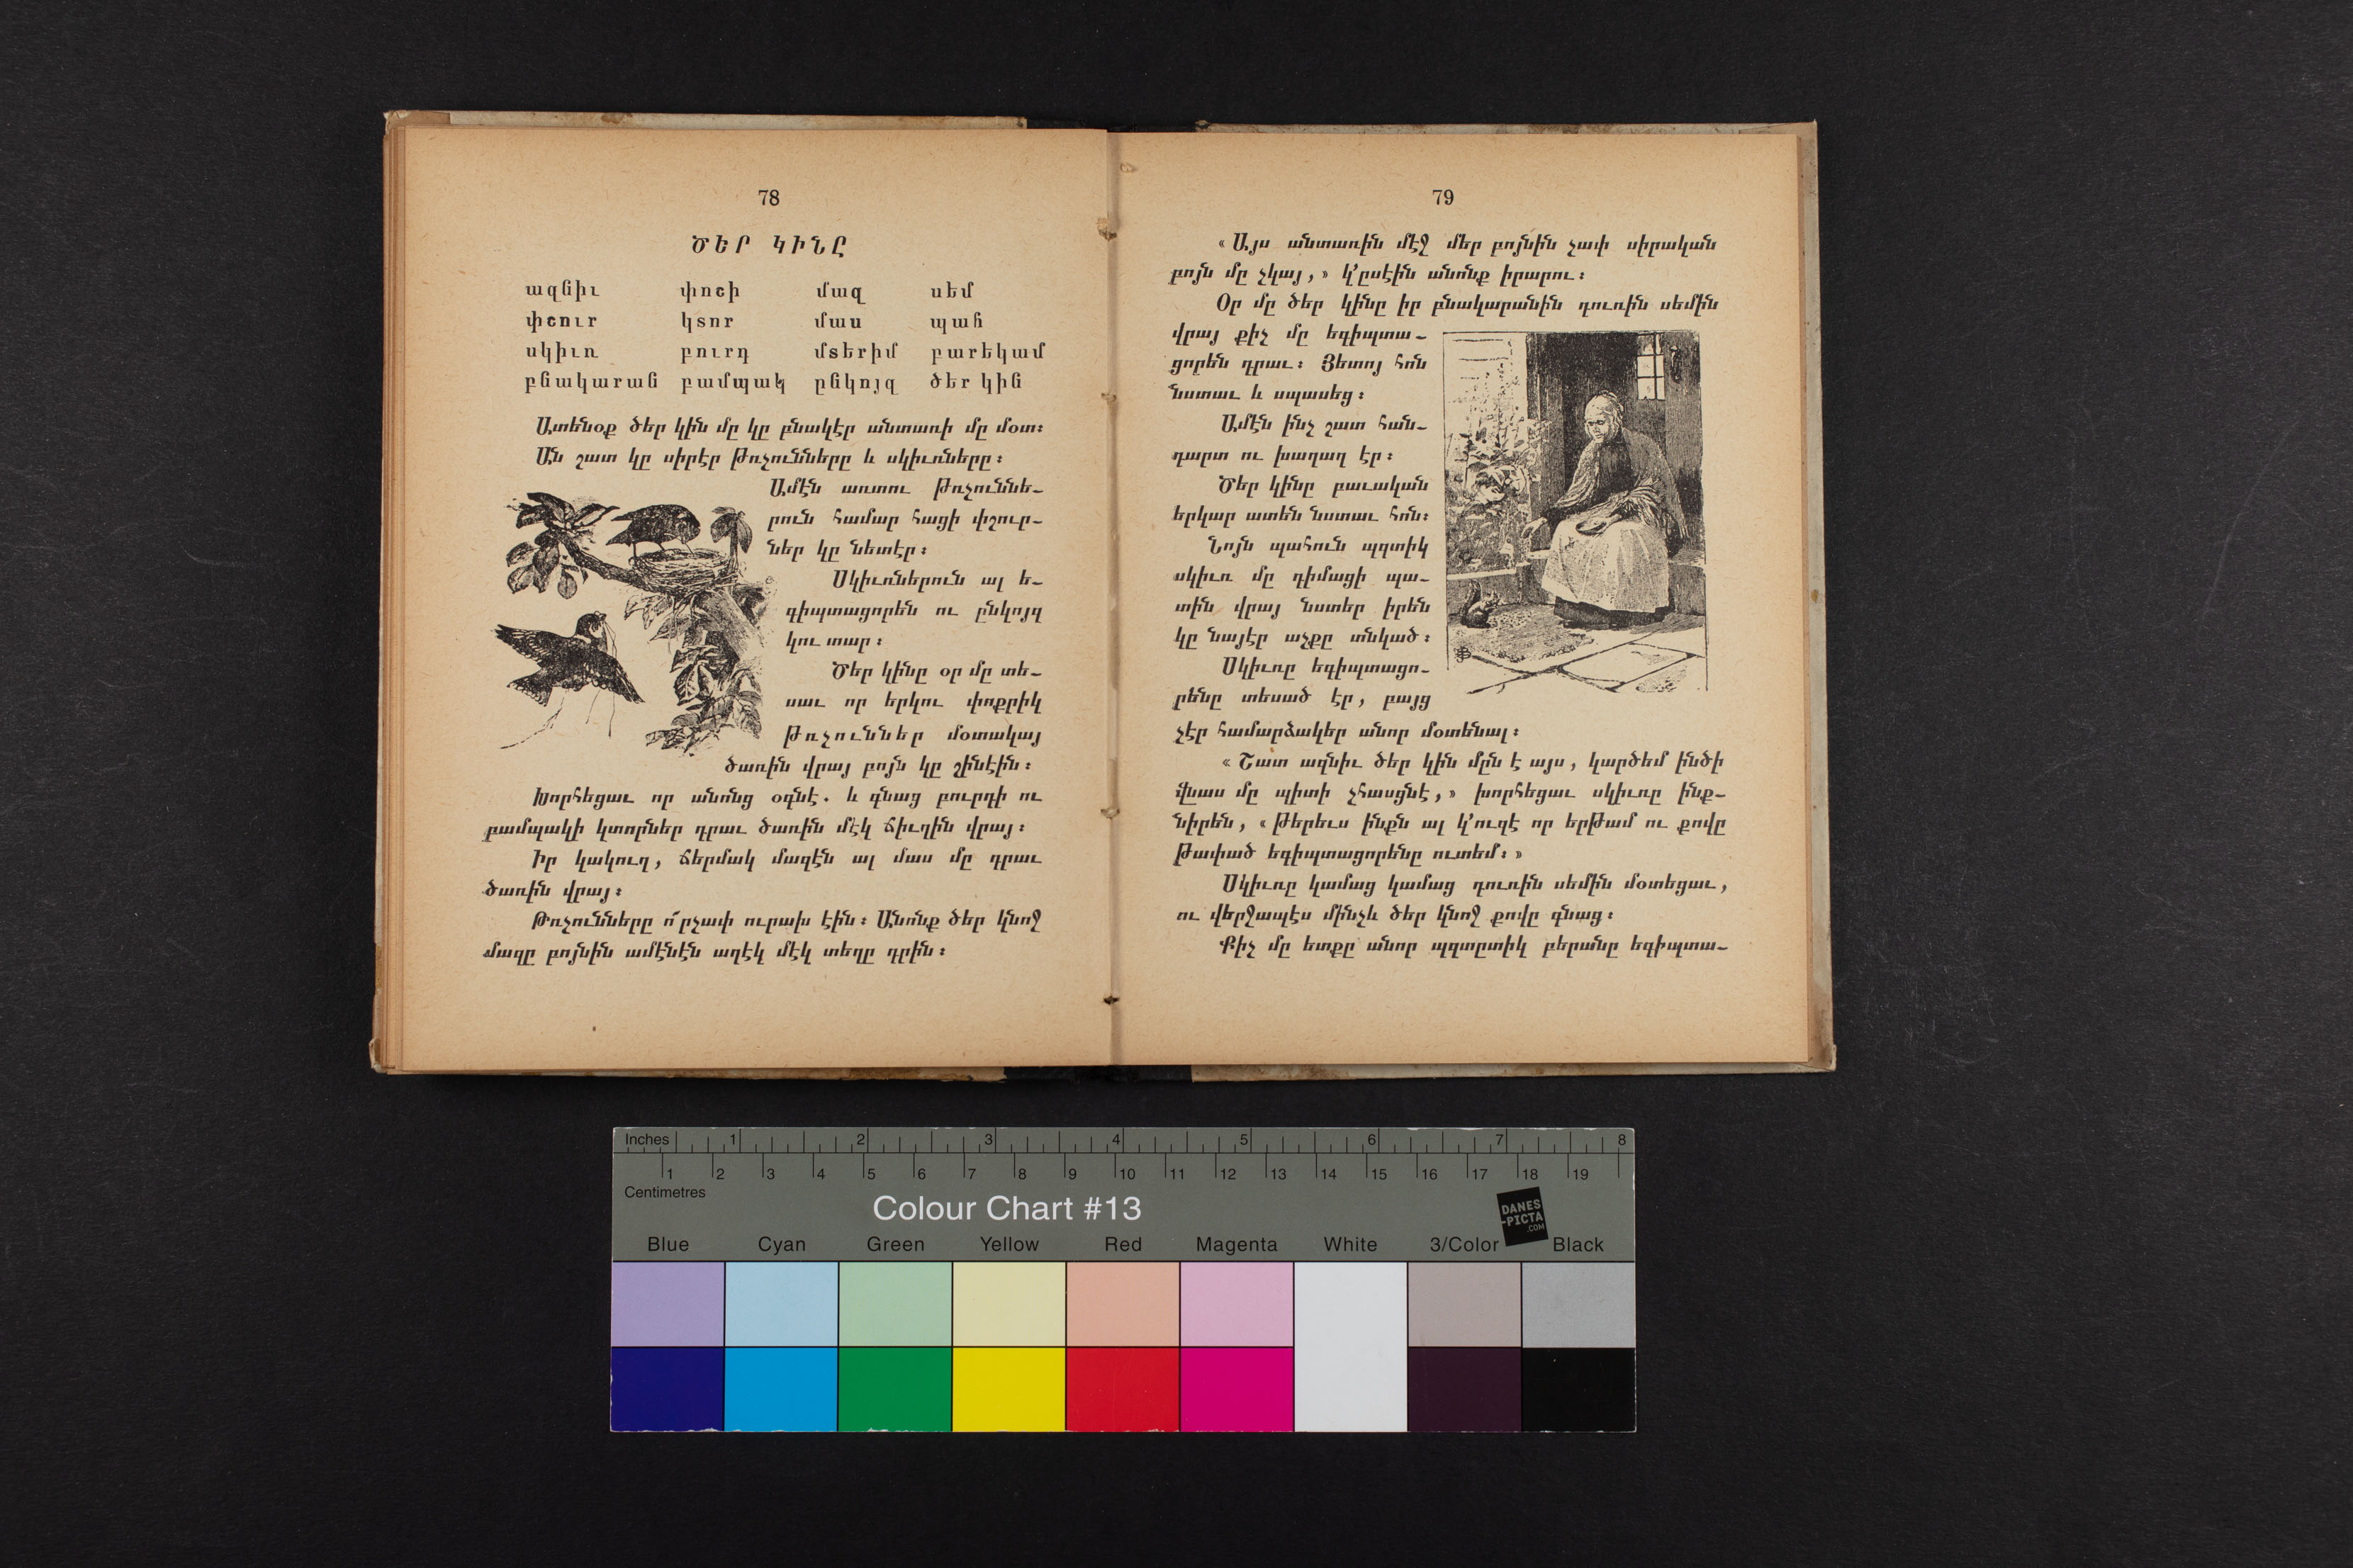 78
ԾԵՐ ԿԻՆԸ
ազնիւ փոշի մազ սեմ
փշուր կտոր մաս պահ
սկիւռ բուրդ մտերիմ բարեկամ
բնակարան բամպակ ընկոյզ ծեր կին
Ատենօք ծեր կին մը կը բնակէր անտառի մը մօտ։
Ան շատ կը սիրէր թռչունները և սկիւռները։
Ամէն առտու թռչուննե-
րուն համար հացի փշուր-
ներ կը նետէր։
Սկիւռներուն ալ ե-
գիպտացորեն ու ընկոյզ
կու տար։
Ծեր կինը օր մը տե-
սաւ որ երկու փոքրիկ
թռչուններ մօտակայ
ծառին վրայ բոյն կը շինէին։
Խորհեցաւ որ անոնց օգնէ. և գնաց բուրդի ու
բամպակի կտորներ դրաւ ծառին մէկ ճիւղին վրայ։
Իր կակուղ, ճերմակ մազէն ալ մաս մը դրաւ
ծառին վրայ։
Թռչունները ո՜րչափ ուրախ էին։ Անոնք ծեր կնոջ
մազը բոյնին ամէնէն աղէկ մէկ տեղը դրին։
79
«Այս անտառին մէջ մեր բոյնին չափ սիրական
բոյն մը չկայ,» կ՚ըսէին անոնք իրարու։
Օր մը ծեր կինը իր բնակարանին դուռին սեմին
վրայ քիչ մը եգիպտա-
ցորեն դրաւ։ Յետոյ հոն
նստաւ և սպասեց։
Ամէն ինչ շատ հան-
դարտ ու խաղաղ էր։
Ծեր կինը բաւական
երկար ատեն նստաւ հոն։
Նոյն պահուն պզտիկ
սկիւռ մը դիմացի պա-
տին վրայ նստեր իրեն
կը նայէր աչքը տնկած։
Սկիւռը եգիպտացո-
րենը տեսած էր, բայց
չէր համարձակեր անոր մօտենալ։
«Շատ ազնիւ ծեր կին մըն է այս, կարծեմ ինծի
վնաս մը պիտի չհասցնէ,» խորհեցաւ սկիւռը ինք-
նիրեն, «թերեւս ինքն ալ կ՚ուզէ որ երթամ ու քովը
թափած եգիպտացորենը ուտեմ։»
Սկիւռը կամաց կամաց դուռին սեմին մօտեցաւ,
ու վերջապէս մինչև ծեր կնոջ քովը գնաց։
Քիչ մը ետքը անոր պզտըտիկ բերանը եգիպտա-
Inches 1 2 3 4 5 6 7 8
1 2 3 4 5 6 7 8 9 10 11 12 13 14 15 16 17 18 19
Centimetres
Colour Chart #13
DANES
-PICTA
.COM
Blue Cyan Green Yellow Red Magenta White 3/Color Black